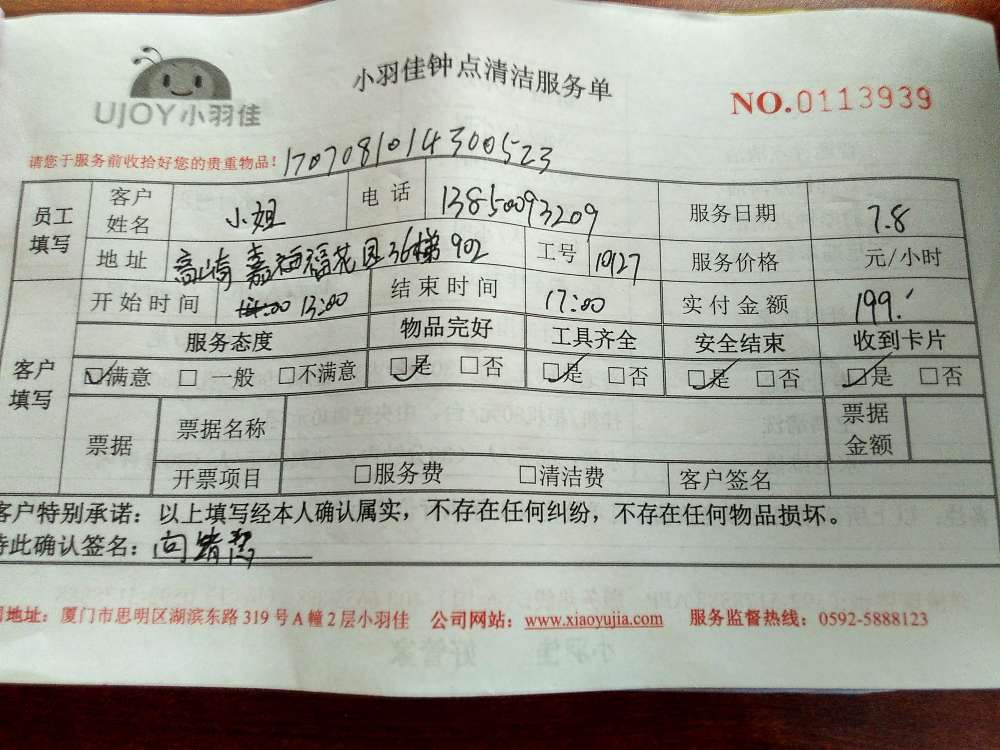 小羽佳钟点清洁服务单
UJOY小羽佳
NO.0113939
请您于服务前收拾好您的贵重物品！ 1707081014300523
员工填写 客户姓名 小姐 电话 13850093209 服务日期 7.8
地址 高崎 嘉福花园36梯902 工号 10127 服务价格 元/小时
开始时间 13:00 结束时间 17:00 实付金额 199.
客户填写 服务态度 物品完好 工具齐全 安全结束 收到卡片
☑满意 □一般 □不满意 ☑是 □否 ☑是 □否 ☑是 □否 ☑是 □否
票据 票据名称 票据金额
开票项目 □服务费 □清洁费 客户签名
客户特别承诺：以上填写经本人确认属实，不存在任何纠纷，不存在任何物品损坏。
特此确认签名：
地址：厦门市思明区湖滨东路319号A幢2层小羽佳 公司网站：www.xiaoyujia.com 服务监督热线：0592-5888123